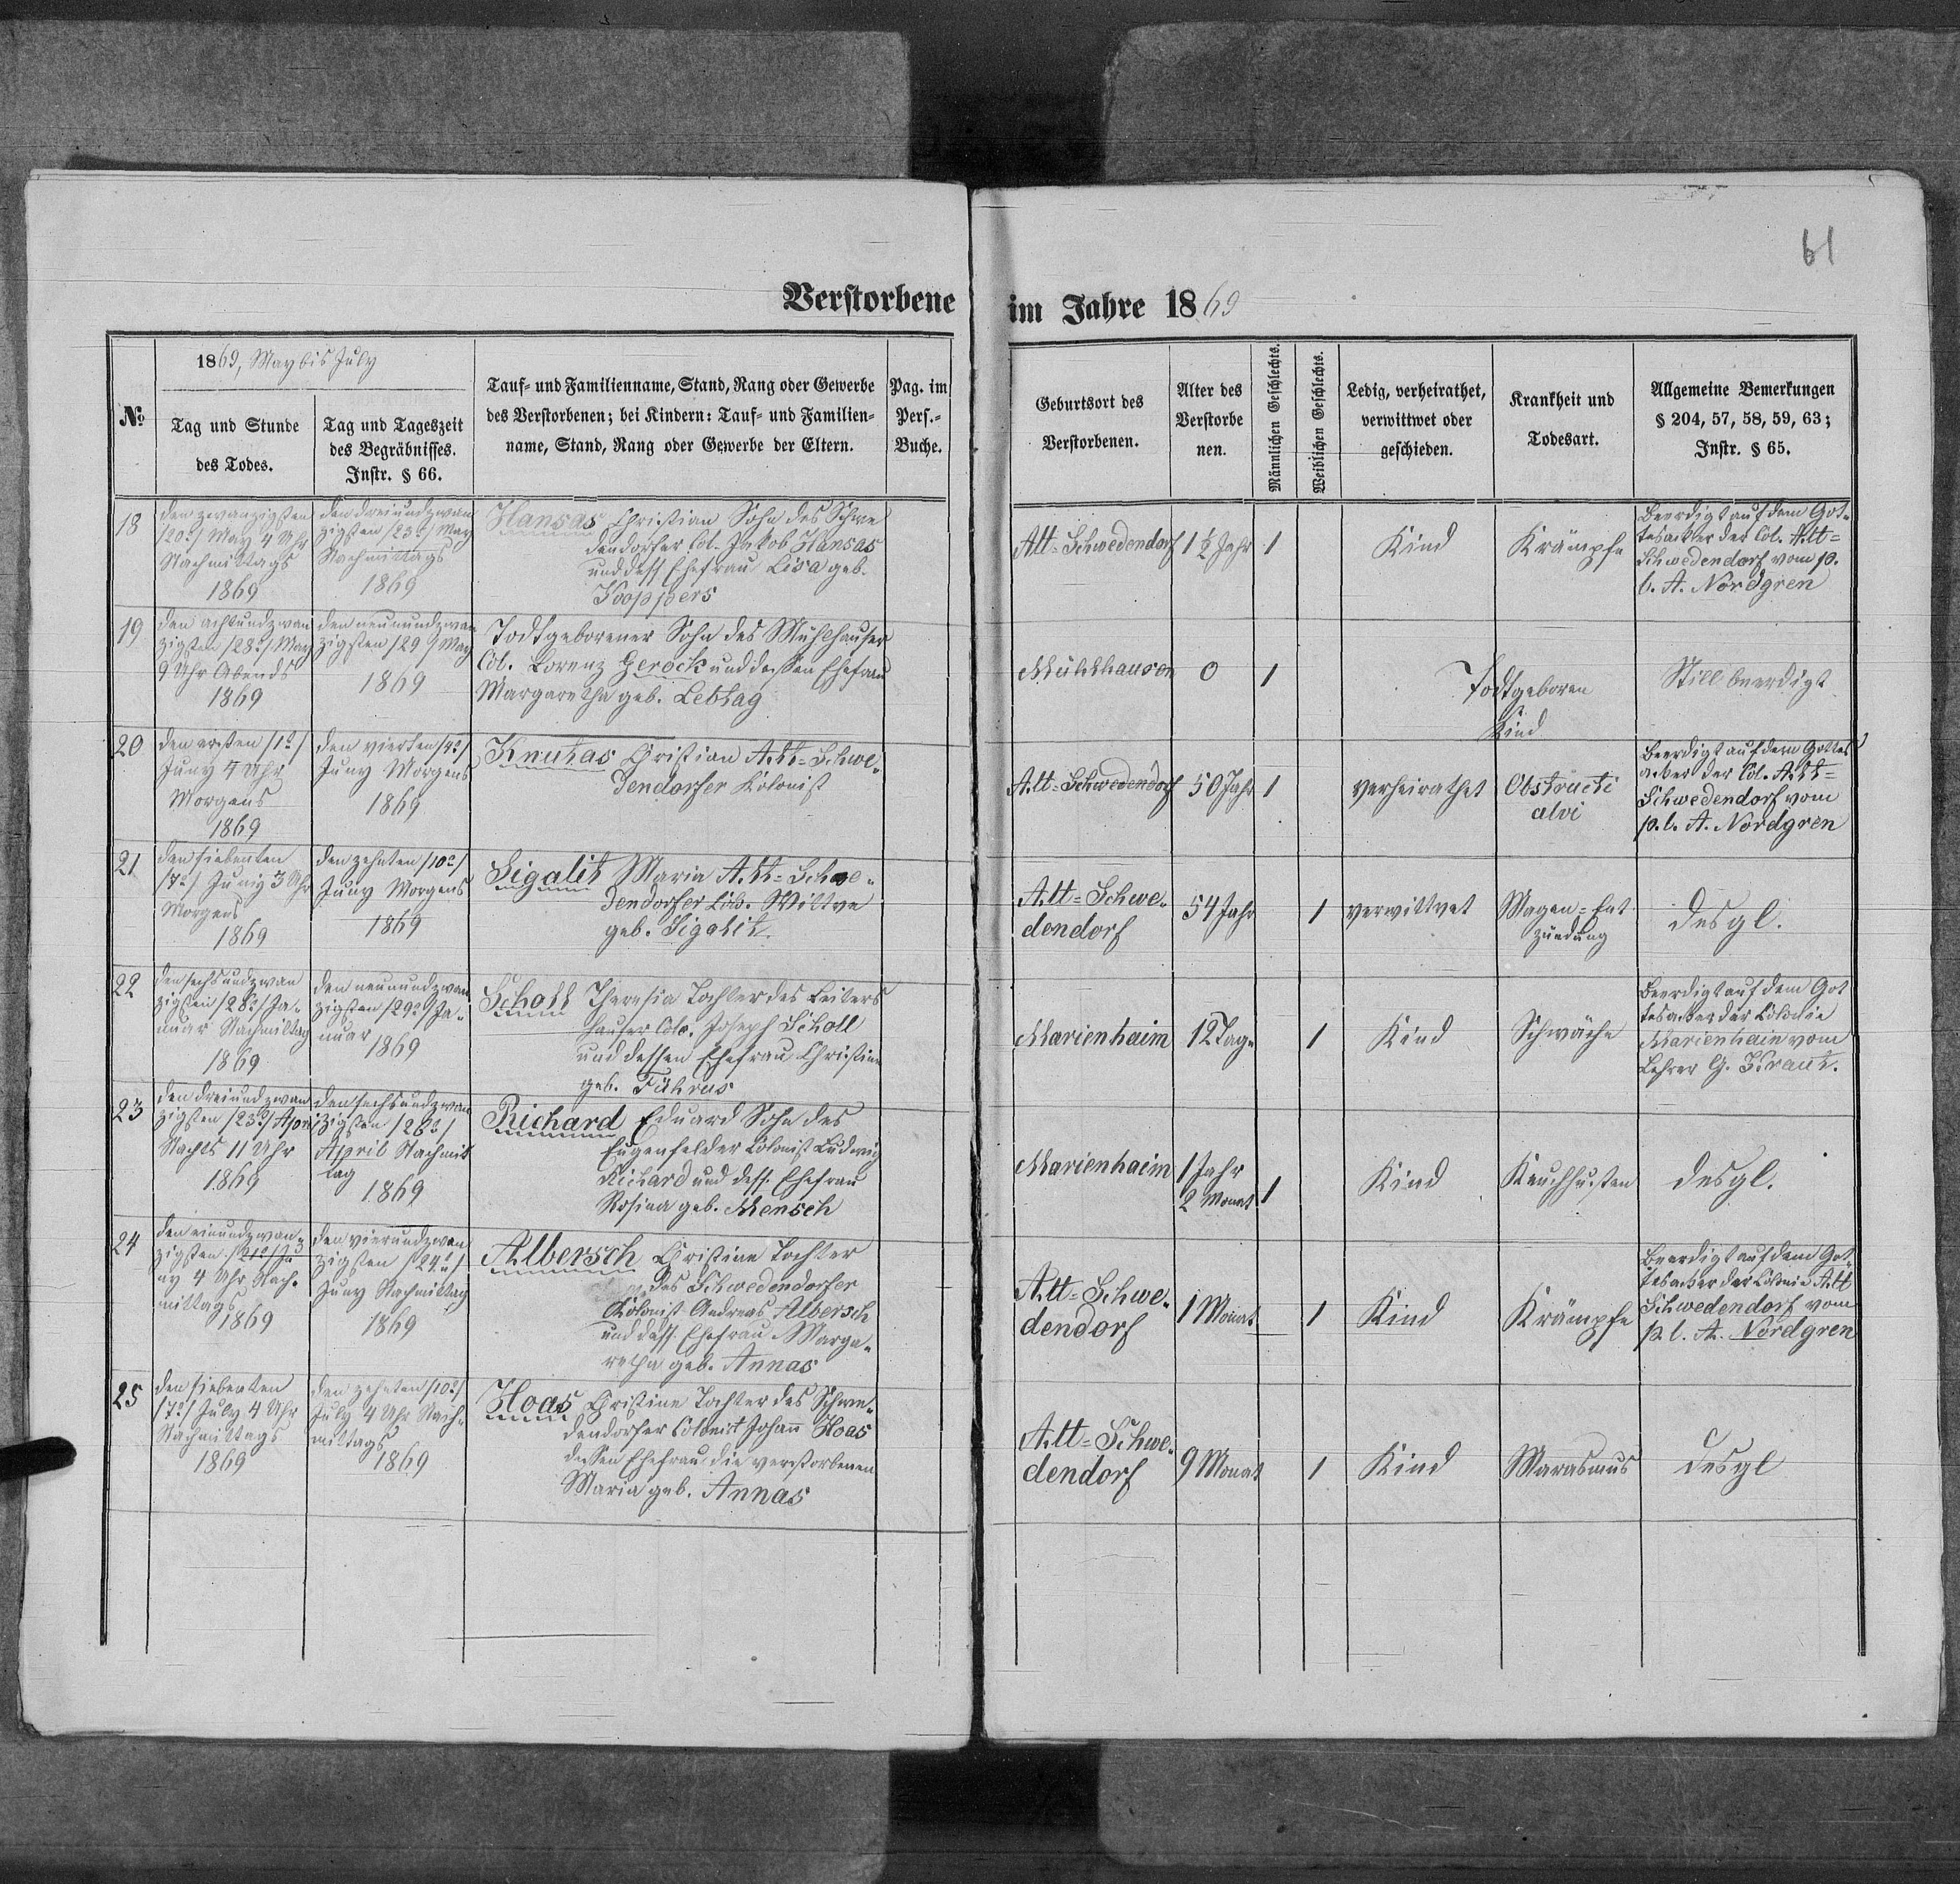 61
Verstorbene im Jahre 1869
1869, May bis July
№
Tag und Stunde
des Todes.
Tag und Tageszeit
des Begräbnisses.
Instr. § 66.
Tauf- und Familienname, Stand, Rang oder Gewerbe
des Verstorbenen; bei Kindern: Tauf- und Familien-
name, Stand, Rang oder Gewerbe der Eltern.
Pag. im
Pers.-
Buche.
Geburtsort des
Verstorbenen.
Alter des
Verstorbe
nen.
Männlichen Geschlechts.
Weiblichen Geschlechts.
Ledig, verheirathet,
verwittwet oder
geschieden.
Krankheit und
Todesart.
Allgemeine Bemerkungen
§ 204, 57, 58, 59, 63;
Instr. § 65.
18
den zwanzigsten
/20./ May 4 Uhr
Nachmittags
1869
den dreiundzwan
zigsten /23./ May
Nachmittags
1869
Hansas Christian Sohn des Schwe
dendorfer Col. Jakob Hansas
und dess Ehefrau Lisa geb.
Koppers
Alt-Schwedendorf
1 1/2 Jahr
1
Kind
Krämpfe
Beerdigt auf dem Got-
tesacker der Col. Alt-
Schwedendorf vom p.
l. A. Nordgren
19
den achtundzwan
zigsten /28./ May
9 Uhr Abends
1869
den neunundzwan
zigsten /29./ May
1869
Todtgeborener Sohn des Mühlhauser
Col. Lorenz Gerock und dessen Ehefrau
Margaretha geb. Lebsag
Mühlhausen
0
1
Todtgeboren
Kind
Still beerdigt
20
den ersten /1./
Juny 4 Uhr
Morgens
1869
den vierten /4./
Juny Morgens
1869
Knutas Christian Alt-Schwe-
dendorfer Kolonist
Alt-Schwedendorf
50 Jahr
1
verheirathet
Obstructi
alvi
Beerdigt auf dem Gottes
acker der Col. Alt-
Schwedendorf vom
p. l. A. Nordgren
21
den siebenten
/7./ Juny 3 Uhr
Morgens
1869
den zehnten /10./
Juny Morgens
1869
Sigalit Maria Alt-Schwe-
dendorfer Col. Wittwe
geb. Sigalit.
Alt-Schwe-
dendorf
54 Jahr
1
verwittwet
Magen-Ent
zündung
desgl.
22
den sechsundzwan
zigsten /26./ Ja-
nuar Nachmittag
1869
den neunundzwan
zigsten /29./ Ja-
nuar 1869
Scholl Theresia Tochter des
hauser Colo. Joseph Scholl
und dessen Ehefrau Christine
geb. Führus
Marienhaim
12 Tage
1
Kind
Schwäche
Beerdigt auf dem Got
tesacker der Colonie
Marienhaim vom
Lehrer G. Kraut.
23
den dreiundzwan
zigsten /23./ April
Nachts 11 Uhr
1869
den sechsundzwan
zigsten /26./
April Nachmit
tag
1869
Richard Eduard Sohn des
Eugenfelder Colonist Ludwig
Richard und dess. Ehefrau
Rosina geb. Mensch
Marienhaim
1 Jahr
2 Monat
1
Kind
Keuchhusten
desgl.
24
den einundzwan-
zigsten /21./ Ju
ny 4 Uhr Nach-
mittags
1869
den vierundzwan
zigsten /24./
Juny Nachmittag
1869
Albersch Christine Tochter
des Schwedendorfer
Kolonist Andreas Albersch
und dess. Ehefrau Marga-
retha geb. Annas
Alt-Schwe-
dendorf
1 Monat
1
Kind
Krämpfe
Beerdigt auf dem Got
tesacker der Colonie Alt
Schwedendorf vom
p. l. A. Nordgren
25
den siebenten
/7./ July 4 Uhr
Nachmittags
1869
den zehnten /10./
July 4 Uhr Nach-
mittags
1869
Hoas Christine Tochter des Schwe-
dendorfer Colonist Johann Hoas
dessen Ehefrau die verstorbenen
Maria geb. Annas
Alt-Schwe-
dendorf
9 Monat
1
Kind
Marasmus
desgl